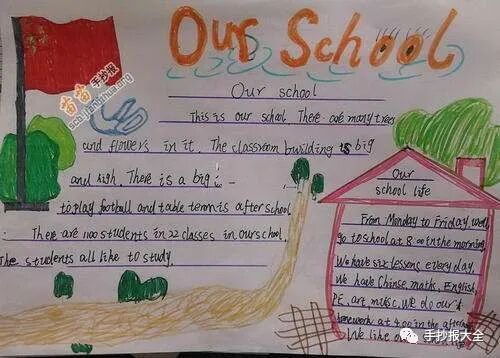 OUR SCHOOL
Our school
This is our school. There are many trees
and flowers in it. The classroom building is big
and high. There is a big
to play football and table tennis after school
There are 1100 students in 22 classes in our school.
The students all like to study.
Our
school life
From Monday to Friday, we
go to school at 8:00 in the morning
We have six lessons every day.
We have Chinse, math, English
PE, art, music. We do our
homework at 4:00 in the after
We like our
手抄报
手抄报大全